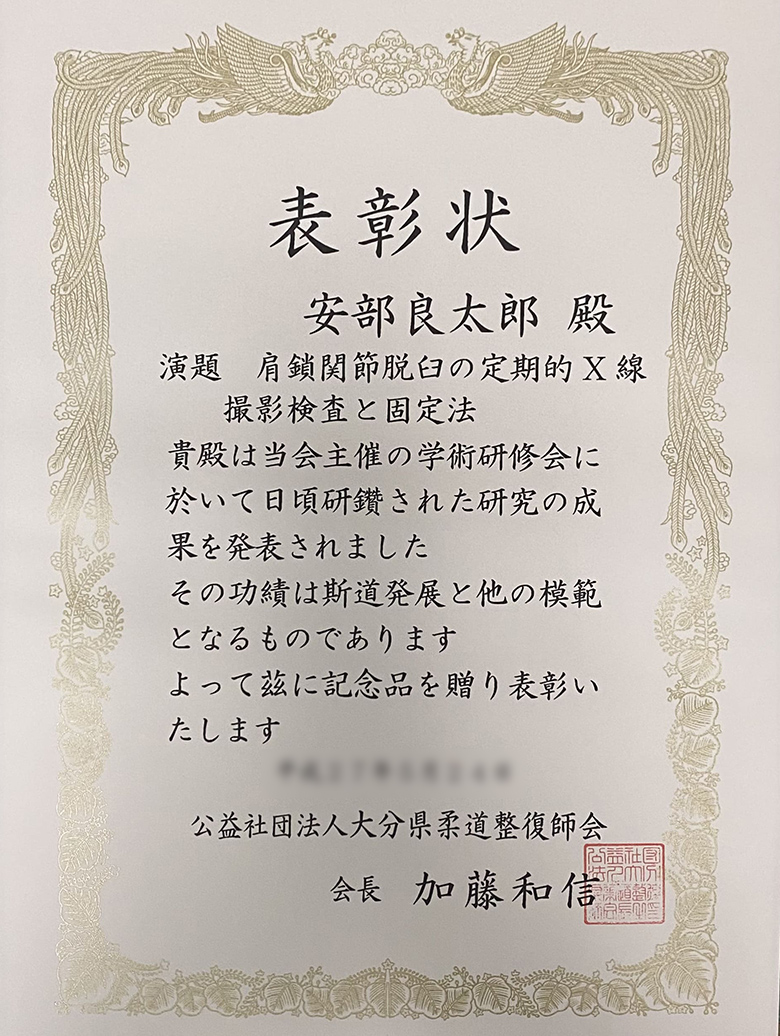 表彰状
安部良太郎 殿
演題 肩鎖関節脱臼の定期的X線
撮影検査と固定法
貴殿は当会主催の学術研修会に
於いて日頃研鑽された研究の成
果を発表されました
その功績は斯道発展と他の模範
となるものであります
よって茲に記念品を贈り表彰い
たします
公益社団法人大分県柔道整復師会
会長 加藤和信